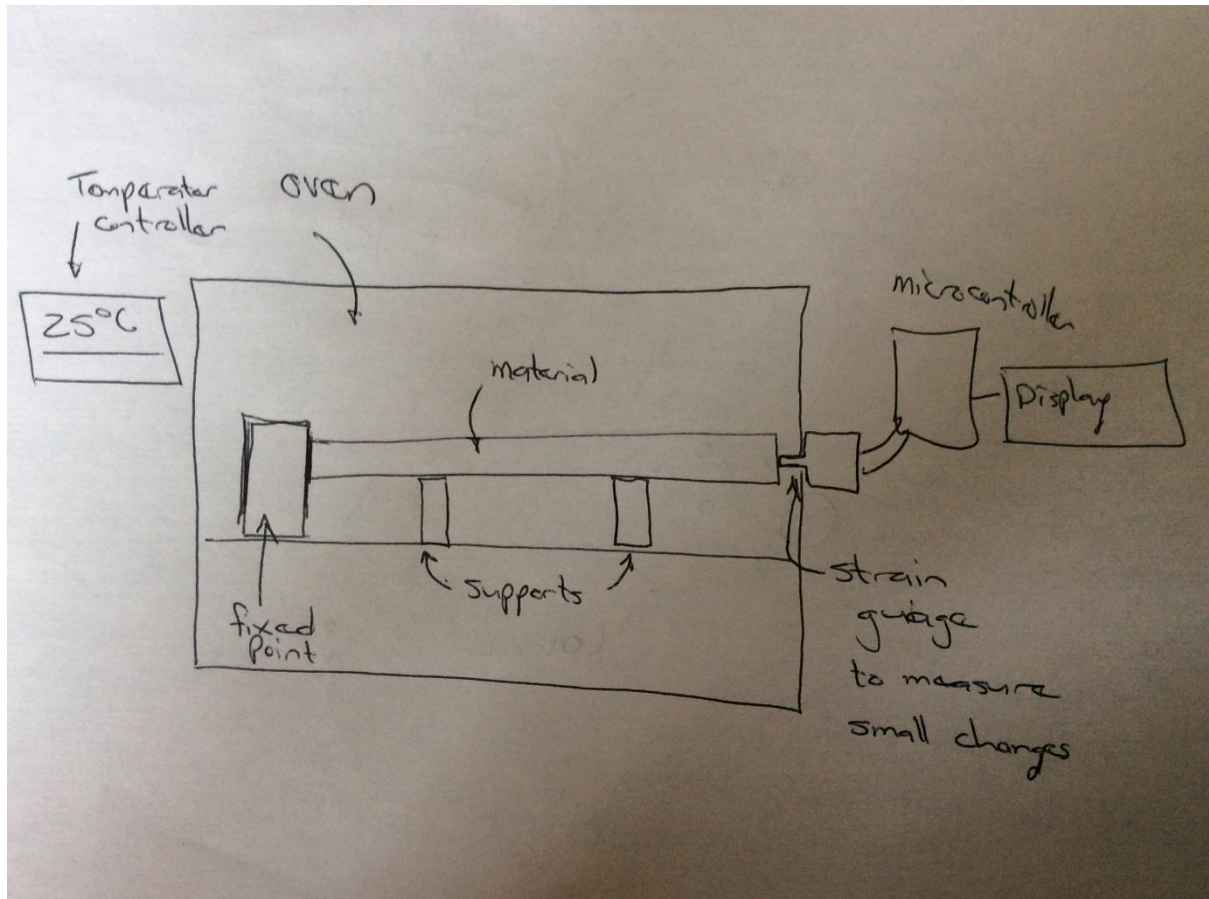 Temperater
controller
oven
25°C
material
microcontroller
Display
fixed
point
supports
strain
guiage
to measure
small changes